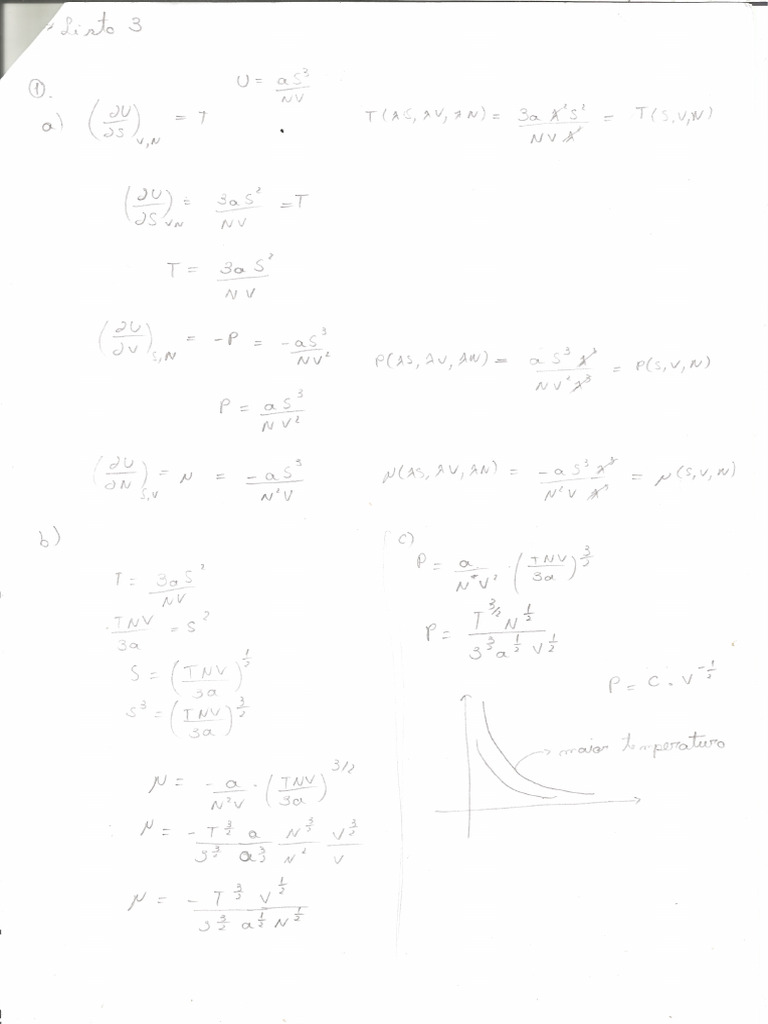 Lista 3
①.
U = aS³/NV
a) (∂U/∂S)_V,N = T
T(λS, λV, λN) = 3a λ²S²/NV λ² = T(S,V,N)
(∂U/∂S)_VN = 3aS²/NV = T
T = 3aS²/NV
(∂U/∂V)_S,N = -P = -aS³/NV²
P(λS, λV, λN) = a S³ λ³/NV² λ³ = P(S, V, N)
P = aS³/NV²
(∂U/∂N)_S,V = μ = -aS³/N²V
μ(λS, λV, λN) = -a S³ λ³/N²V λ³ = μ(S, V, N)
b)
T = 3aS²/NV
TNV/3a = S²
S = (TNV/3a)^1/2
S³ = (TNV/3a)^3/2
μ = -a/N²V · (TNV/3a)^3/2
μ = -T^3/2 a/3^3/2 a^3/2 N^3/2/N² V^3/2/V
μ = -T^3/2 V^1/2/3^3/2 a^1/2 N^1/2
c)
P = a/N V² · (TNV/3a)^3/2
P = T^3/2 N^1/2/3^3/2 a^1/2 V^1/2
P = C · V^-1/2
maior temperatura